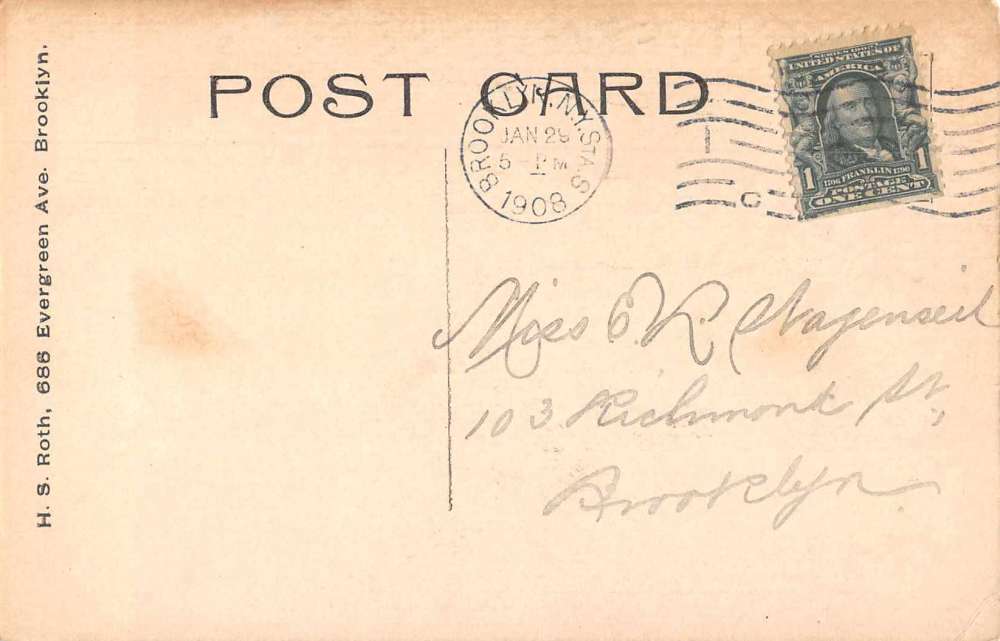 H. S. Roth, 686 Evergreen Ave. Brooklyn.
POST CARD
BROOKLYN, N.Y. STA. S
JAN 29
5 - PM
1908
C
SERIES 1902
UNITED STATES OF
AMERICA
1 1
1706 FRANKLIN 1790
POSTAGE
ONE CENT
Miss E. R. Wagenseil
103 Richmond St,
Brooklyn